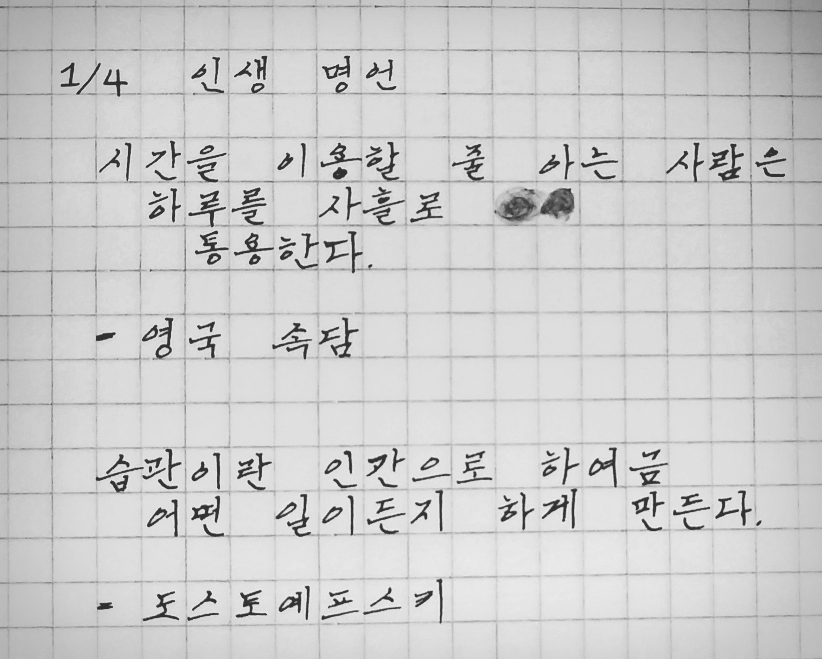 1/4 인생 명언
시간을 이용할 줄 아는 사람은
하루를 사흘로
통용한다.
- 영국 속담
습관이란 인간으로 하여금
어떤 일이든지 하게 만든다.
- 도스토예프스키